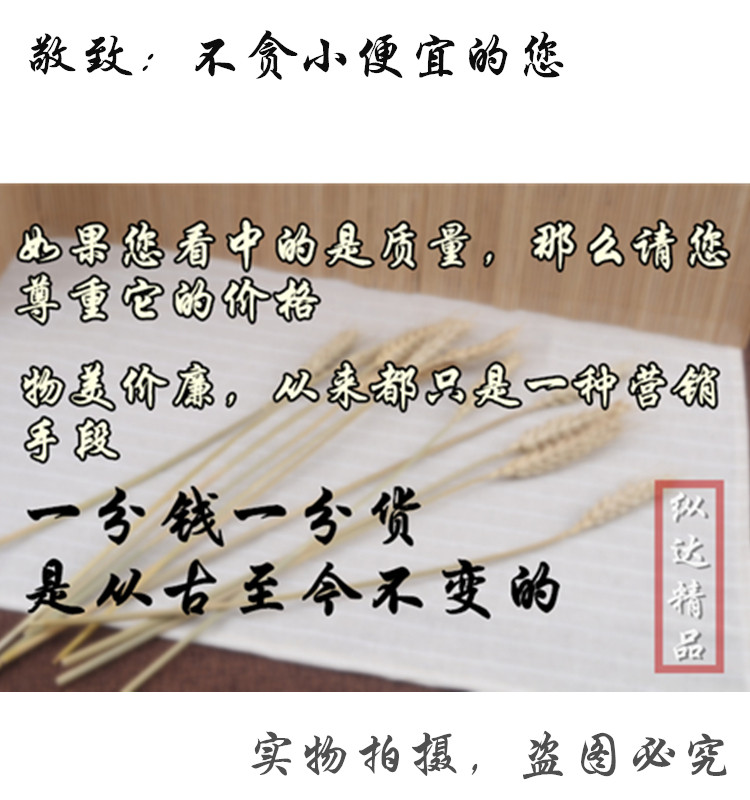 敬致：不贪小便宜的您
如果您看中的是质量，那么请您
尊重它的价格
物美价廉，从来都只是一种营销
手段
一分钱一分货
是从古至今不变的
纵达精品
实物拍摄，盗图必究